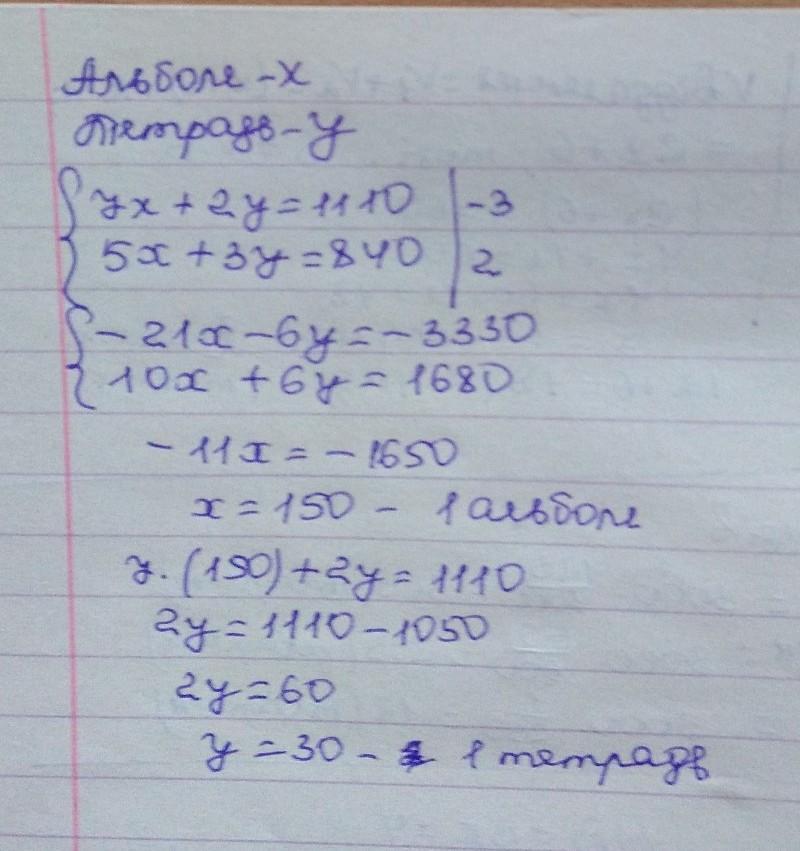 Альбом - x
Тетрадь - y
7x + 2y = 1110 | -3
5x + 3y = 840 | 2
- 21x - 6y = - 3330
10x + 6y = 1680
- 11x = - 1650
x = 150 - 1 альбом
7 · (150) + 2y = 1110
2y = 1110 - 1050
2y = 60
y = 30 - 1 тетрадь